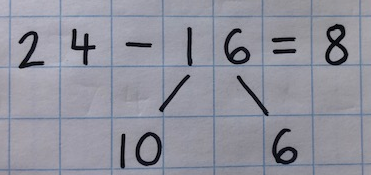 24 - 16 = 8
10 6